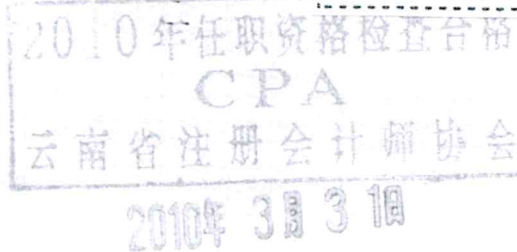 2010年任职资格检查合格
CPA
云南省注册会计师协会
2010年 3月 31日